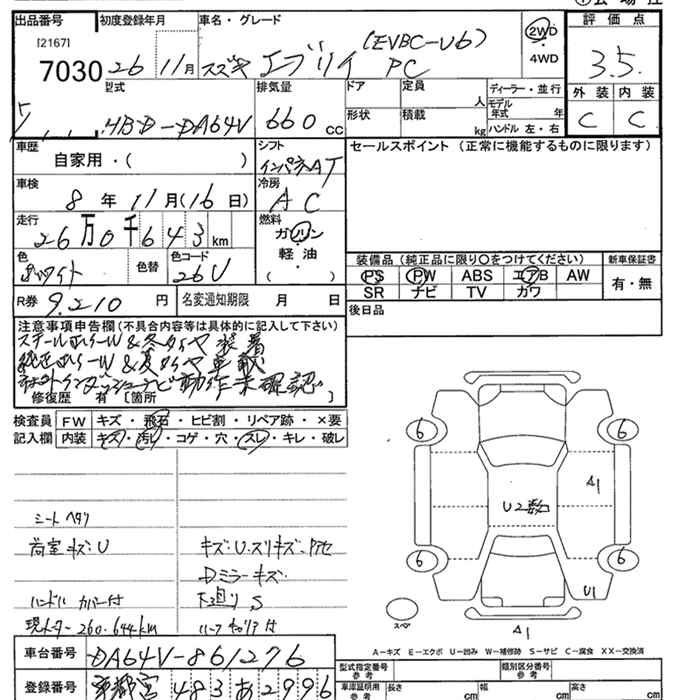 出品番号 初度登録年月 車名・グレード 評価点
[2167]
7030 26年11月 スズキ エブリイ (EVBC-U6) PC 2WD・4WD 3.5
型式 排気量 ドア 定員 人 ディーラー・並行 外装 内装
HBD-DA64V 660cc 形状 積載 kg モデル年式 年 C C
ハンドル 左・右
車歴 シフト セールスポイント (正常に機能するものに限ります)
自家用・( ) インパネAT
車検 冷房
8年11月(16日) AC
走行 燃料
26万0千643km ガソリン・軽油・( )
色 色替 色コード 装備品 (純正品に限り○をつけてください) 新車保証書
ホワイト 26U PS PW ABS エアB AW 有・無
SR ナビ TV カワ
R券 9.210円 名変通知期限 月 日 後日品
注意事項申告欄(不具合内容等は具体的に記入して下さい)
スチールホイールW&冬タイヤ装着
純正ホイールW&夏タイヤ車載
動作未確認
修復歴 有 [箇所 ]
検査員 FW キズ・飛石・ヒビ割・リペア跡・×要
記入欄 内装 キズ・汚レ・コゲ・穴・スレ・キレ・破レ
6 6
A1
U2数
6 6
U1
シートヘタリ
荷室キズ・U キズ・U・スリキズ・
Dミラーキズ
ハンドルカバー付 下廻りS
現メーター260.644km
スペア
A1
A−キズ E−エクボ U−凹み W−補修跡 S−サビ C−腐食 XX−交換済
車台番号 DA64V-861276
登録番号 宇都宮 483 あ 2996
型式指定番号 参考 類別区分番号 参考
車庫証明用 参考 長さ cm 幅 cm 高さ cm